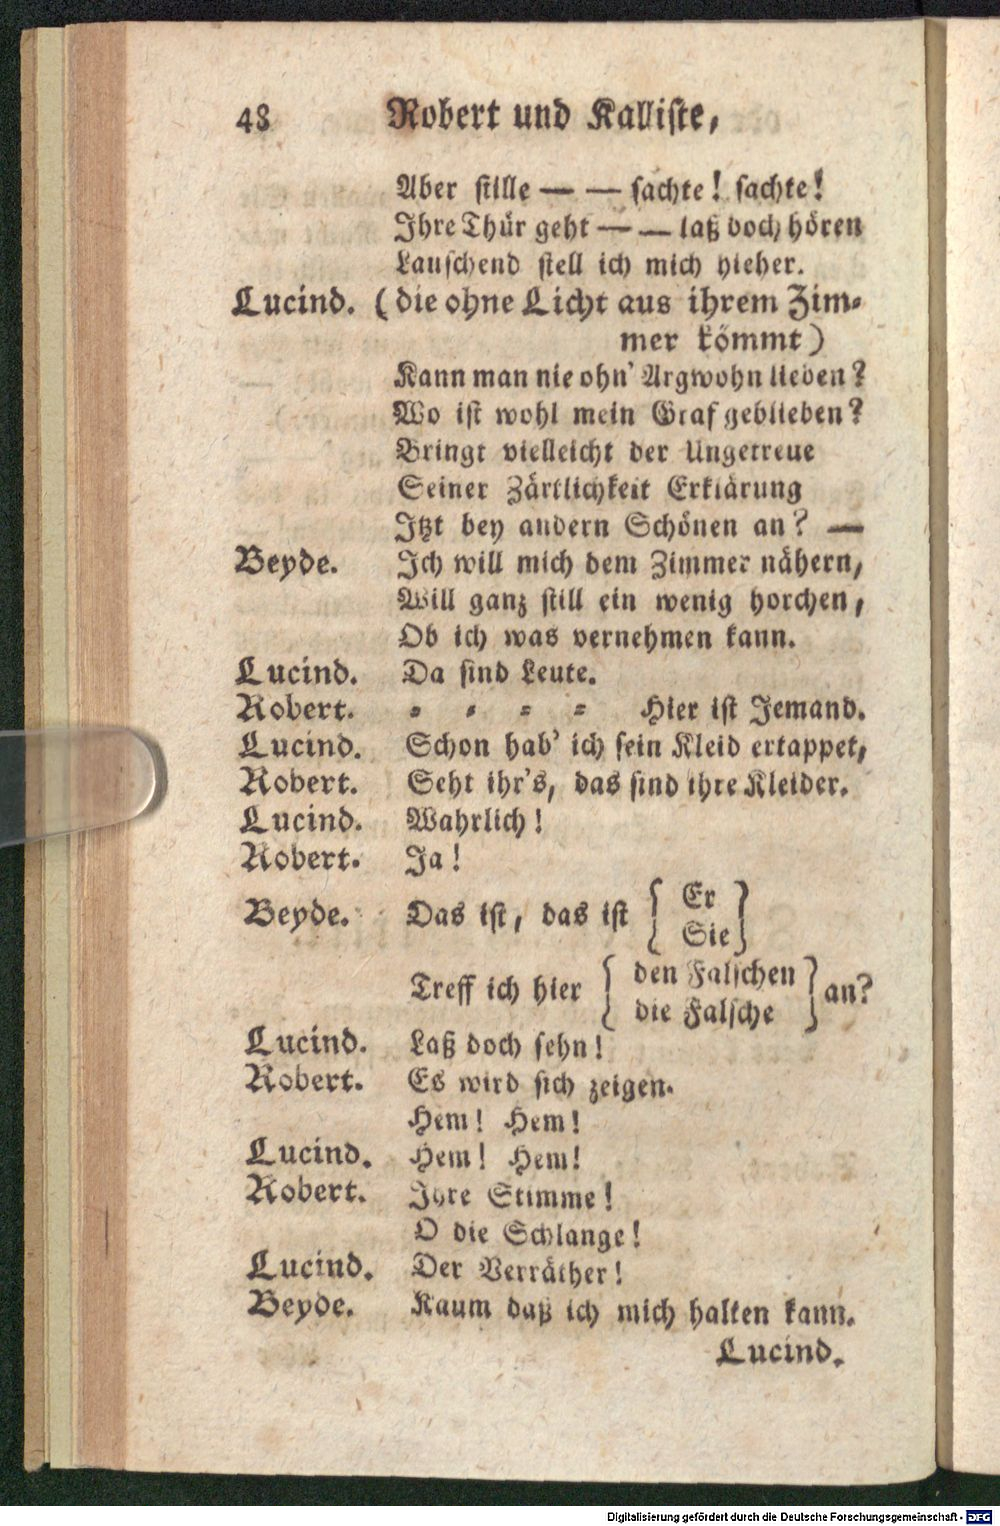 48 Robert und Kalliste,
Aber stille — — sachte! sachte!
Ihre Thür geht — — laß doch hören
Lauschend stell ich mich hieher.
Lucind. (die ohne Licht aus ihrem Zim-
mer kömmt)
Kann man nie ohn' Argwohn lieben?
Wo ist wohl mein Graf geblieben?
Bringt vielleicht der Ungetreue
Seiner Zärtlichkeit Erklärung
Itzt bey andern Schönen an? —
Beyde. Ich will mich dem Zimmer nähern,
Will ganz still ein wenig horchen,
Ob ich was vernehmen kann.
Lucind. Da sind Leute.
Robert. = = = = Hier ist Jemand.
Lucind. Schon hab' ich sein Kleid ertappet,
Robert. Seht ihr's, das sind ihre Kleider.
Lucind. Wahrlich!
Robert. Ja!
Beyde. Das ist, das ist { Er
Sie }
Treff ich hier { den Falschen
die Falsche } an?
Lucind. Laß doch sehn!
Robert. Es wird sich zeigen.
Hem! Hem!
Lucind. Hem! Hem!
Robert. Ihre Stimme!
O die Schlange!
Lucind. Der Verräther!
Beyde. Kaum daß ich mich halten kann.
Lucind.
Digitalisierung gefördert durch die Deutsche Forschungsgemeinschaft - DFG